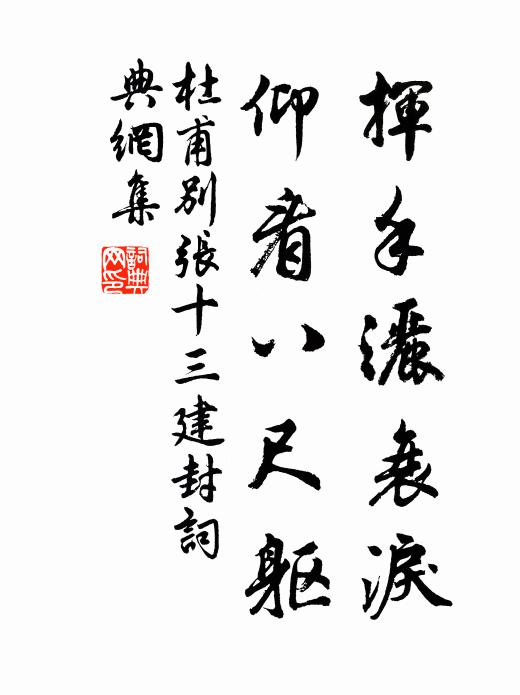 揮手灑衰淚
仰看八尺軀
杜甫別張十三建封詞
典網集
詞典
网印